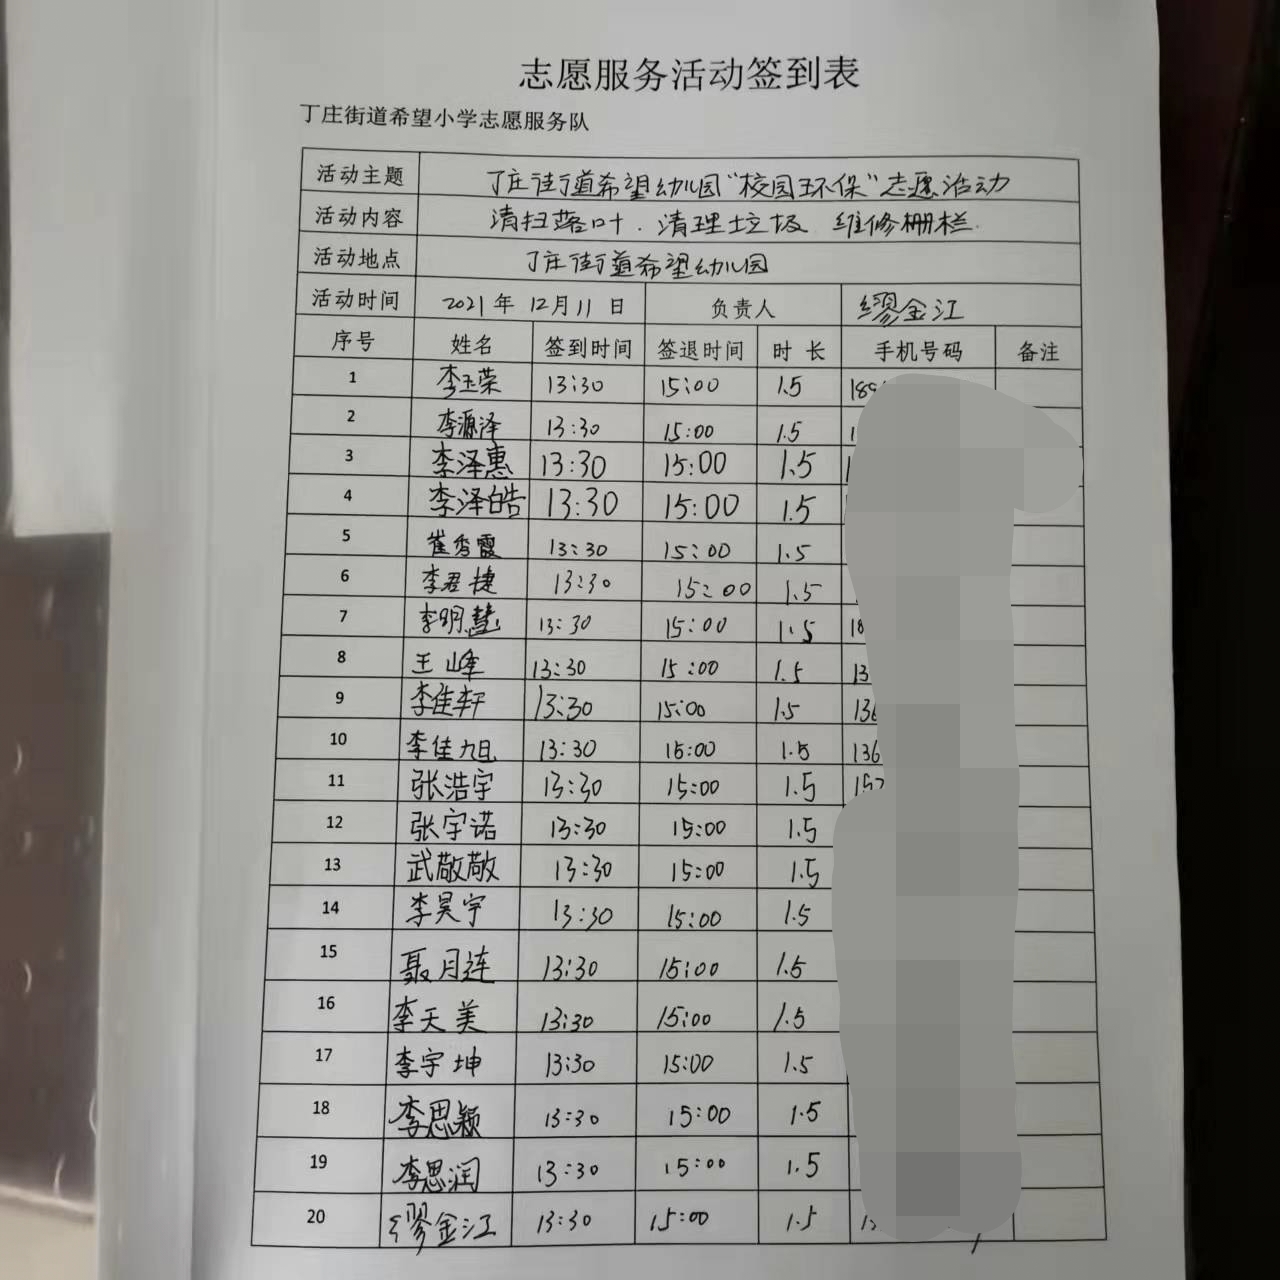 志愿服务活动签到表
丁庄街道希望小学志愿服务队
活动主题 丁庄街道希望幼儿园“校园环保”志愿活动
活动内容 清扫落叶.清理垃圾 维修栅栏.
活动地点 丁庄街道希望幼儿园
活动时间 2021年 12月11日 负责人 缪金江
序号 姓名 签到时间 签退时间 时长 手机号码 备注
1 李玉荣 13:30 15:00 1.5 189
2 李源泽 13:30 15:00 1.5 1
3 李泽惠 13:30 15:00 1.5
4 李泽皓 13:30 15:00 1.5
5 崔秀霞 13:30 15:00 1.5
6 李君捷 13:30 15:00 1.5
7 李明慧 13:30 15:00 1.5 18
8 王峰 13:30 15:00 1.5 13
9 李佳轩 13:30 15:00 1.5 136
10 李佳旭 13:30 15:00 1.5 136
11 张浩宇 13:30 15:00 1.5 157
12 张宇诺 13:30 15:00 1.5
13 武敬敬 13:30 15:00 1.5
14 李昊宇 13:30 15:00 1.5
15 聂月连 13:30 15:00 1.5
16 李天美 13:30 15:00 1.5
17 李宇坤 13:30 15:00 1.5
18 李思颖 13:30 15:00 1.5
19 李思润 13:30 15:00 1.5
20 缪金江 13:30 15:00 1.5 13